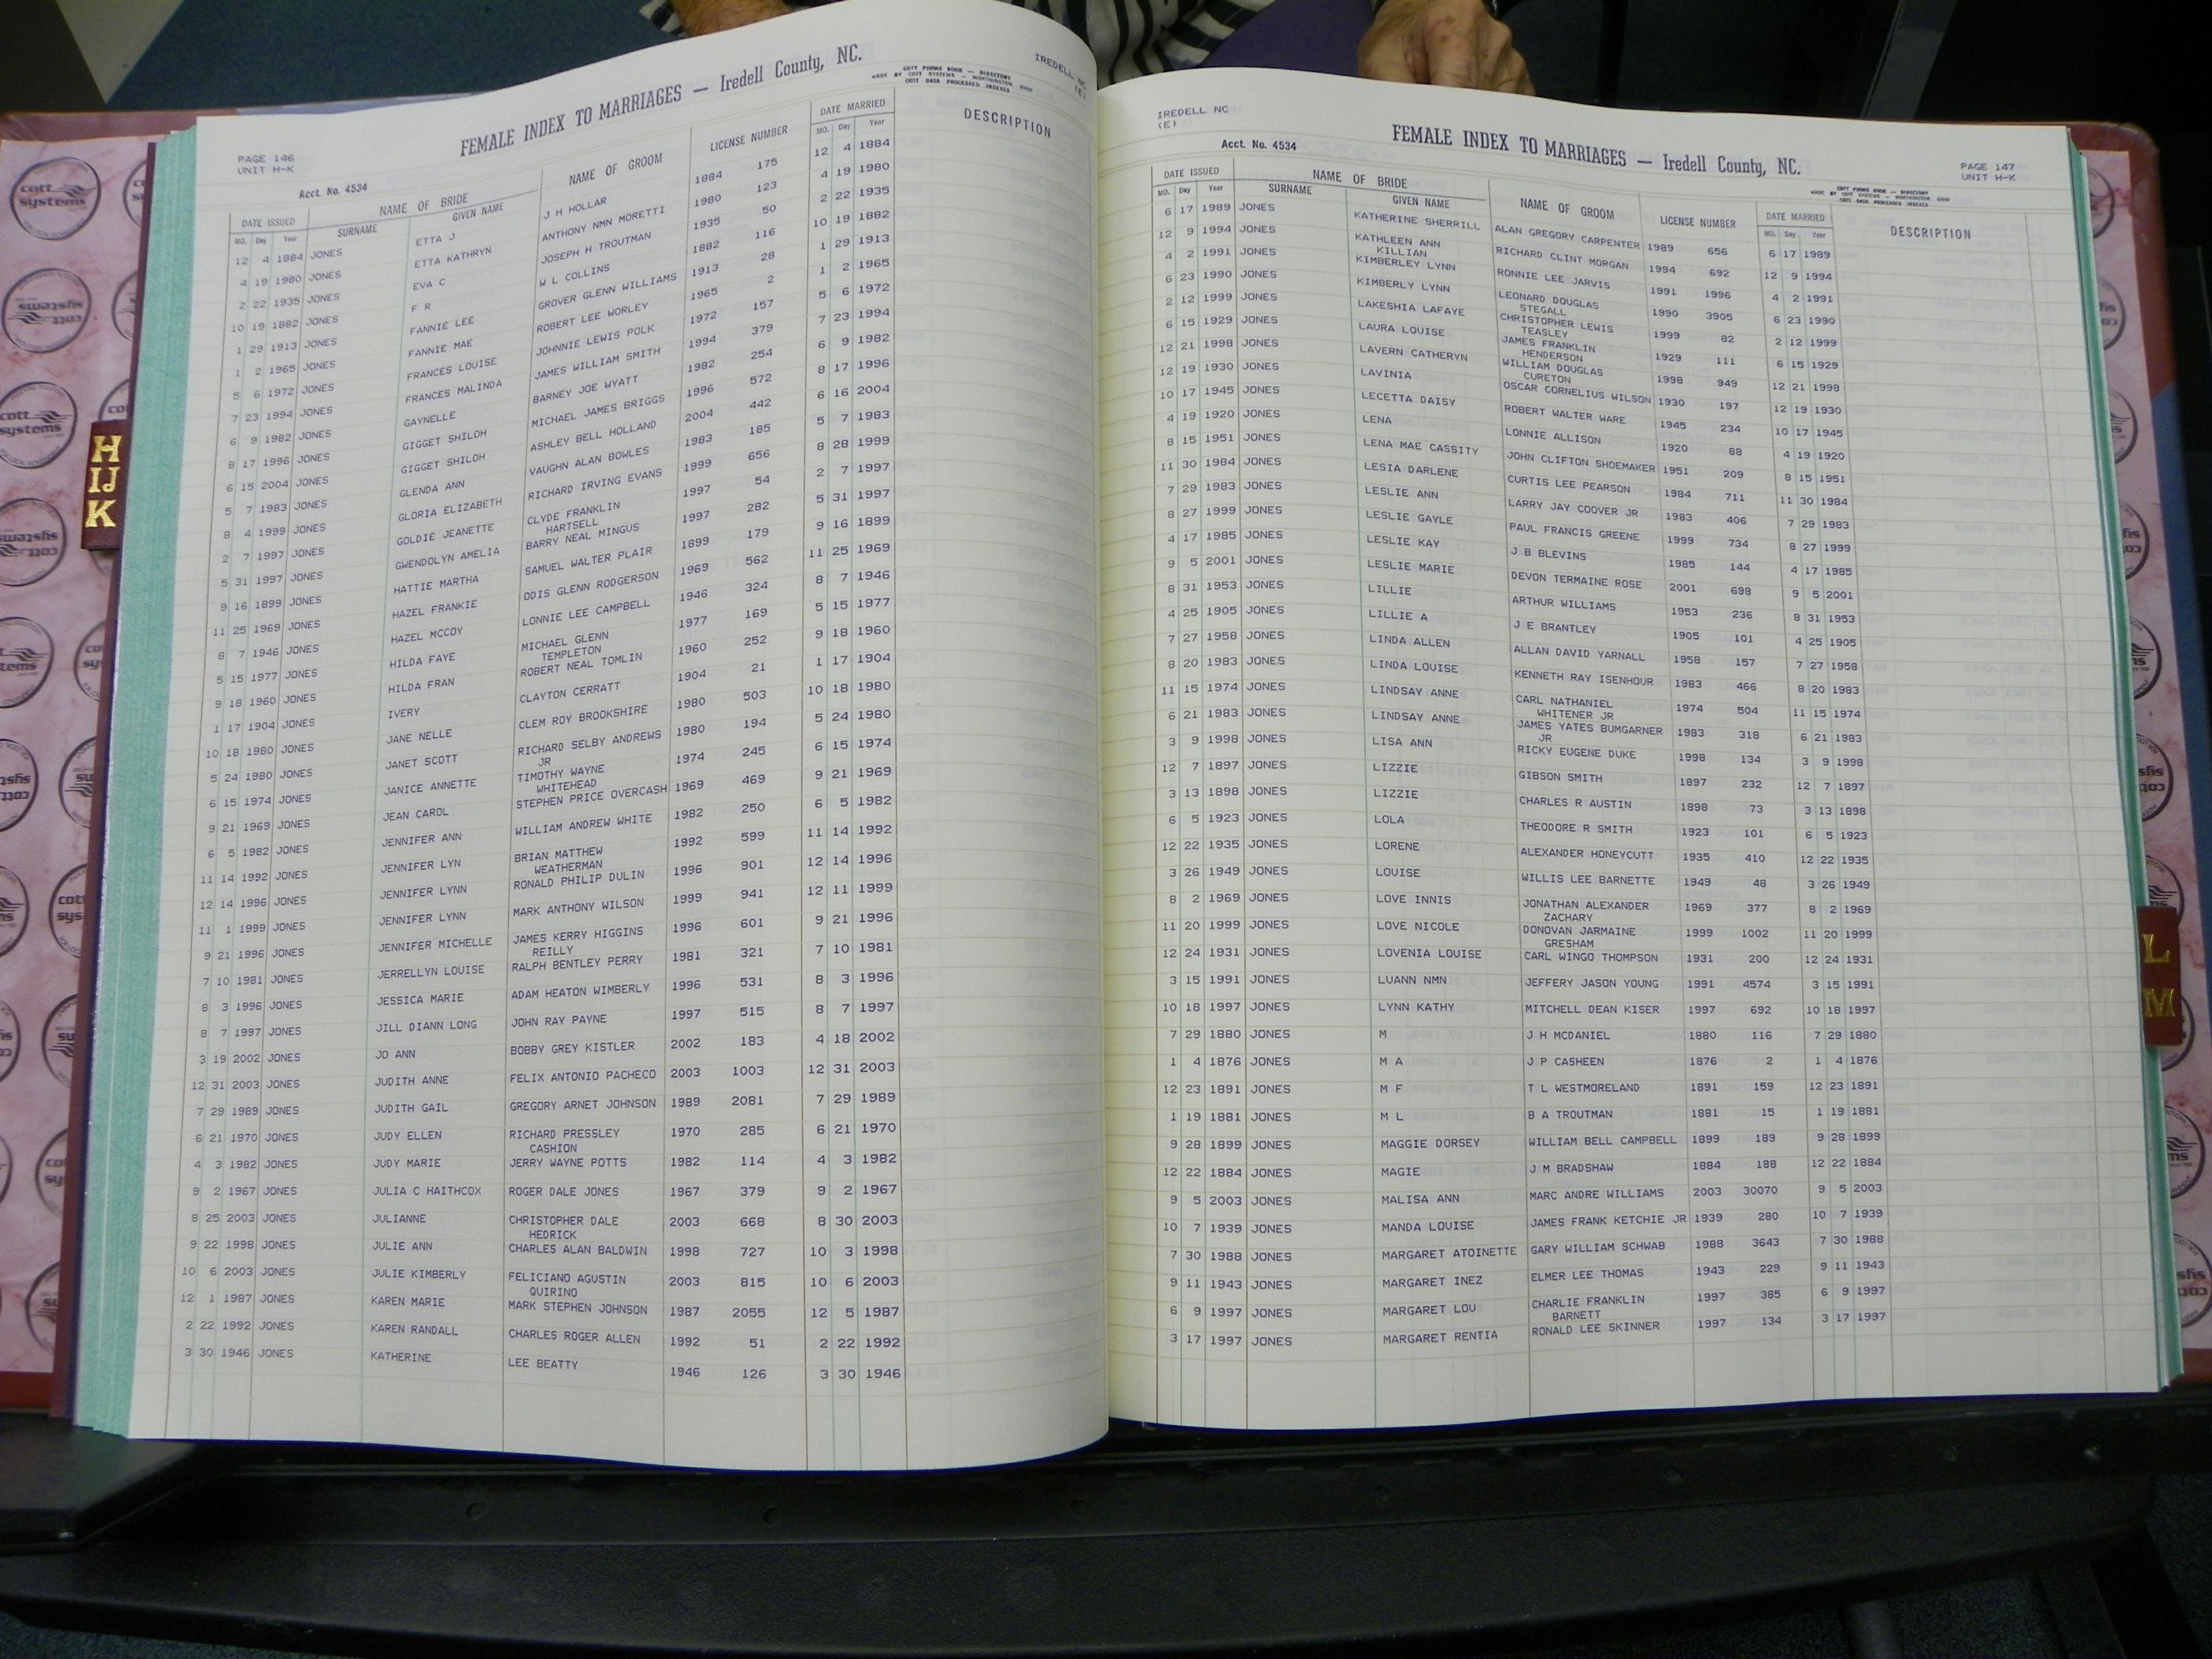 IREDELL NC
(E)
FEMALE INDEX TO MARRIAGES — Iredell County, NC.
COTT PHONE BOOK — DIRECTORY
MADE BY COTT SYSTEMS — WORTHINGTON, OHIO
COTT DATA PROCESSED INDEXES
PAGE 146
UNIT H-K
Acct. No. 4534
DATE ISSUED NAME OF BRIDE NAME OF GROOM LICENSE NUMBER DATE MARRIED DESCRIPTION
MO. Day Year SURNAME GIVEN NAME MO. Day Year
12 4 1884 JONES ETTA J J H HOLLAR 1884 175 12 4 1884
4 19 1980 JONES ETTA KATHRYN ANTHONY NMN MORETTI 1980 123 4 19 1980
2 22 1935 JONES EVA C JOSEPH H TROUTMAN 1935 50 2 22 1935
10 19 1882 JONES F R W L COLLINS 1882 116 10 19 1882
1 29 1913 JONES FANNIE LEE GROVER GLENN WILLIAMS 1913 28 1 29 1913
1 2 1965 JONES FANNIE MAE ROBERT LEE WORLEY 1965 2 1 2 1965
5 6 1972 JONES FRANCES LOUISE JOHNNIE LEWIS POLK 1972 157 5 6 1972
7 23 1994 JONES FRANCES MALINDA JAMES WILLIAM SMITH 1994 379 7 23 1994
6 9 1982 JONES GAYNELLE BARNEY JOE WYATT 1982 254 6 9 1982
8 17 1996 JONES GIGGET SHILOH MICHAEL JAMES BRIGGS 1996 572 8 17 1996
6 15 2004 JONES GIGGET SHILOH ASHLEY BELL HOLLAND 2004 442 6 16 2004
5 7 1983 JONES GLENDA ANN VAUGHN ALAN BOWLES 1983 185 5 7 1983
8 4 1999 JONES GLORIA ELIZABETH RICHARD IRVING EVANS 1999 656 8 28 1999
2 7 1997 JONES GOLDIE JEANETTE CLYDE FRANKLIN 1997 54 2 7 1997
HARTSELL
5 31 1997 JONES GWENDOLYN AMELIA BARRY NEAL MINGUS 1997 282 5 31 1997
9 16 1899 JONES HATTIE MARTHA SAMUEL WALTER PLAIR 1899 179 9 16 1899
11 25 1969 JONES HAZEL FRANKIE ODIS GLENN RODGERSON 1969 562 11 25 1969
8 7 1946 JONES HAZEL MCCOY LONNIE LEE CAMPBELL 1946 324 8 7 1946
5 15 1977 JONES HILDA FAYE MICHAEL GLENN 1977 169 5 15 1977
TEMPLETON
9 18 1960 JONES HILDA FRAN ROBERT NEAL TOMLIN 1960 252 9 18 1960
1 17 1904 JONES IVERY CLAYTON CERRATT 1904 21 1 17 1904
10 18 1980 JONES JANE NELLE CLEM ROY BROOKSHIRE 1980 503 10 18 1980
5 24 1980 JONES JANET SCOTT RICHARD SELBY ANDREWS 1980 194 5 24 1980
JR
6 15 1974 JONES JANICE ANNETTE TIMOTHY WAYNE 1974 245 6 15 1974
WHITEHEAD
9 21 1969 JONES JEAN CAROL STEPHEN PRICE OVERCASH 1969 469 9 21 1969
6 5 1982 JONES JENNIFER ANN WILLIAM ANDREW WHITE 1982 250 6 5 1982
11 14 1992 JONES JENNIFER LYN BRIAN MATTHEW 1992 599 11 14 1992
WEATHERMAN
12 14 1996 JONES JENNIFER LYNN RONALD PHILIP DULIN 1996 901 12 14 1996
11 1 1999 JONES JENNIFER LYNN MARK ANTHONY WILSON 1999 941 12 11 1999
9 21 1996 JONES JENNIFER MICHELLE JAMES KERRY HIGGINS 1996 601 9 21 1996
REILLY
7 10 1981 JONES JERRELLYN LOUISE RALPH BENTLEY PERRY 1981 321 7 10 1981
8 3 1996 JONES JESSICA MARIE ADAM HEATON WIMBERLY 1996 531 8 3 1996
8 7 1997 JONES JILL DIANN LONG JOHN RAY PAYNE 1997 515 8 7 1997
3 19 2002 JONES JO ANN BOBBY GREY KISTLER 2002 183 4 18 2002
12 31 2003 JONES JUDITH ANNE FELIX ANTONIO PACHECO 2003 1003 12 31 2003
7 29 1989 JONES JUDITH GAIL GREGORY ARNET JOHNSON 1989 2081 7 29 1989
6 21 1970 JONES JUDY ELLEN RICHARD PRESSLEY 1970 285 6 21 1970
CASHION
4 3 1982 JONES JUDY MARIE JERRY WAYNE POTTS 1982 114 4 3 1982
9 2 1967 JONES JULIA C HAITHCOX ROGER DALE JONES 1967 379 9 2 1967
8 25 2003 JONES JULIANNE CHRISTOPHER DALE 2003 668 8 30 2003
HEDRICK
9 22 1998 JONES JULIE ANN CHARLES ALAN BALDWIN 1998 727 10 3 1998
10 6 2003 JONES JULIE KIMBERLY FELICIANO AGUSTIN 2003 815 10 6 2003
QUIRINO
12 1 1987 JONES KAREN MARIE MARK STEPHEN JOHNSON 1987 2055 12 5 1987
2 22 1992 JONES KAREN RANDALL CHARLES ROGER ALLEN 1992 51 2 22 1992
3 30 1946 JONES KATHERINE LEE BEATTY 1946 126 3 30 1946
IREDELL NC
(E)
FEMALE INDEX TO MARRIAGES — Iredell County, NC.
PAGE 147
UNIT H-K
Acct. No. 4534
COTT PHONE BOOK — DIRECTORY
MADE BY COTT SYSTEMS — WORTHINGTON, OHIO
COTT DATA PROCESSED INDEXES
DATE ISSUED NAME OF BRIDE NAME OF GROOM LICENSE NUMBER DATE MARRIED DESCRIPTION
MO. Day Year SURNAME GIVEN NAME MO. Day Year
6 17 1989 JONES KATHERINE SHERRILL ALAN GREGORY CARPENTER 1989 656 6 17 1989
12 9 1994 JONES KATHLEEN ANN RICHARD CLINT MORGAN 1994 692 12 9 1994
KILLIAN
4 2 1991 JONES KIMBERLEY LYNN RONNIE LEE JARVIS 1991 1996 4 2 1991
6 23 1990 JONES KIMBERLY LYNN LEONARD DOUGLAS 1990 3905 6 23 1990
STEGALL
2 12 1999 JONES LAKESHIA LAFAYE CHRISTOPHER LEWIS 1999 82 2 12 1999
TEASLEY
6 15 1929 JONES LAURA LOUISE JAMES FRANKLIN 1929 111 6 15 1929
HENDERSON
12 21 1998 JONES LAVERN CATHERYN WILLIAM DOUGLAS 1998 949 12 21 1998
CURETON
12 19 1930 JONES LAVINIA OSCAR CORNELIUS WILSON 1930 197 12 19 1930
10 17 1945 JONES LECETTA DAISY ROBERT WALTER WARE 1945 234 10 17 1945
4 19 1920 JONES LENA LONNIE ALLISON 1920 88 4 19 1920
8 15 1951 JONES LENA MAE CASSITY JOHN CLIFTON SHOEMAKER 1951 209 8 15 1951
11 30 1984 JONES LESIA DARLENE CURTIS LEE PEARSON 1984 711 11 30 1984
7 29 1983 JONES LESLIE ANN LARRY JAY COOVER JR 1983 406 7 29 1983
8 27 1999 JONES LESLIE GAYLE PAUL FRANCIS GREENE 1999 734 8 27 1999
4 17 1985 JONES LESLIE KAY J B BLEVINS 1985 144 4 17 1985
9 5 2001 JONES LESLIE MARIE DEVON TERMAINE ROSE 2001 698 9 5 2001
8 31 1953 JONES LILLIE ARTHUR WILLIAMS 1953 236 8 31 1953
4 25 1905 JONES LILLIE A J E BRANTLEY 1905 101 4 25 1905
7 27 1958 JONES LINDA ALLEN ALLAN DAVID YARNALL 1958 157 7 27 1958
8 20 1983 JONES LINDA LOUISE KENNETH RAY ISENHOUR 1983 466 8 20 1983
11 15 1974 JONES LINDSAY ANNE CARL NATHANIEL 1974 504 11 15 1974
WHITENER JR
6 21 1983 JONES LINDSAY ANNE JAMES YATES BUMGARNER 1983 318 6 21 1983
JR
3 9 1998 JONES LISA ANN RICKY EUGENE DUKE 1998 134 3 9 1998
12 7 1897 JONES LIZZIE GIBSON SMITH 1897 232 12 7 1897
3 13 1898 JONES LIZZIE CHARLES R AUSTIN 1898 73 3 13 1898
6 5 1923 JONES LOLA THEODORE R SMITH 1923 101 6 5 1923
12 22 1935 JONES LORENE ALEXANDER HONEYCUTT 1935 410 12 22 1935
3 26 1949 JONES LOUISE WILLIS LEE BARNETTE 1949 48 3 26 1949
8 2 1969 JONES LOVE INNIS JONATHAN ALEXANDER 1969 377 8 2 1969
ZACHARY
11 20 1999 JONES LOVE NICOLE DONOVAN JARMAINE 1999 1002 11 20 1999
GRESHAM
12 24 1931 JONES LOVENIA LOUISE CARL WINGO THOMPSON 1931 200 12 24 1931
3 15 1991 JONES LUANN NMN JEFFERY JASON YOUNG 1991 4574 3 15 1991
10 18 1997 JONES LYNN KATHY MITCHELL DEAN KISER 1997 692 10 18 1997
7 29 1880 JONES M J H MCDANIEL 1880 116 7 29 1880
1 4 1876 JONES M A J P CASHEEN 1876 2 1 4 1876
12 23 1891 JONES M F T L WESTMORELAND 1891 159 12 23 1891
1 19 1881 JONES M L B A TROUTMAN 1881 15 1 19 1881
9 28 1899 JONES MAGGIE DORSEY WILLIAM BELL CAMPBELL 1899 189 9 28 1899
12 22 1884 JONES MAGIE J M BRADSHAW 1884 188 12 22 1884
9 5 2003 JONES MALISA ANN MARC ANDRE WILLIAMS 2003 30070 9 5 2003
10 7 1939 JONES MANDA LOUISE JAMES FRANK KETCHIE JR 1939 280 10 7 1939
7 30 1988 JONES MARGARET ATOINETTE GARY WILLIAM SCHWAB 1988 3643 7 30 1988
9 11 1943 JONES MARGARET INEZ ELMER LEE THOMAS 1943 229 9 11 1943
6 9 1997 JONES MARGARET LOU CHARLIE FRANKLIN 1997 385 6 9 1997
BARNETT
3 17 1997 JONES MARGARET RENTIA RONALD LEE SKINNER 1997 134 3 17 1997
H
IJ
K
L
M
cott
systems